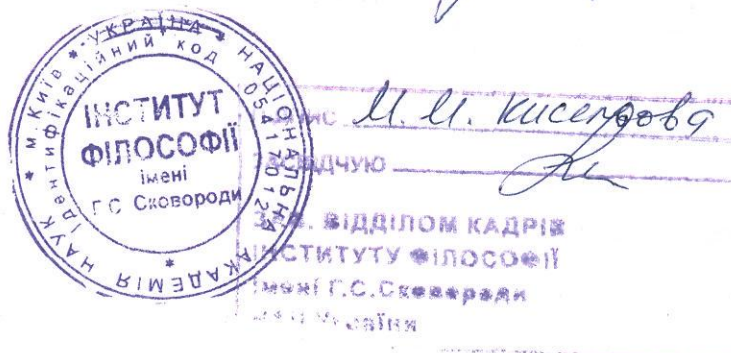 * УКРАЇНА * НАЦІОНАЛЬНА АКАДЕМІЯ НАУК * м. Київ
* Ідентифікаційний код 05417012
ІНСТИТУТ
ФІЛОСОФІЇ
імені
Г.С. Сковороди
М. М.
ЗАСВІДЧУЮ
ЗАВ. ВІДДІЛОМ КАДРІВ
ІНСТИТУТУ ФІЛОСОФІЇ
імені Г.С.Сковороди
НАН України